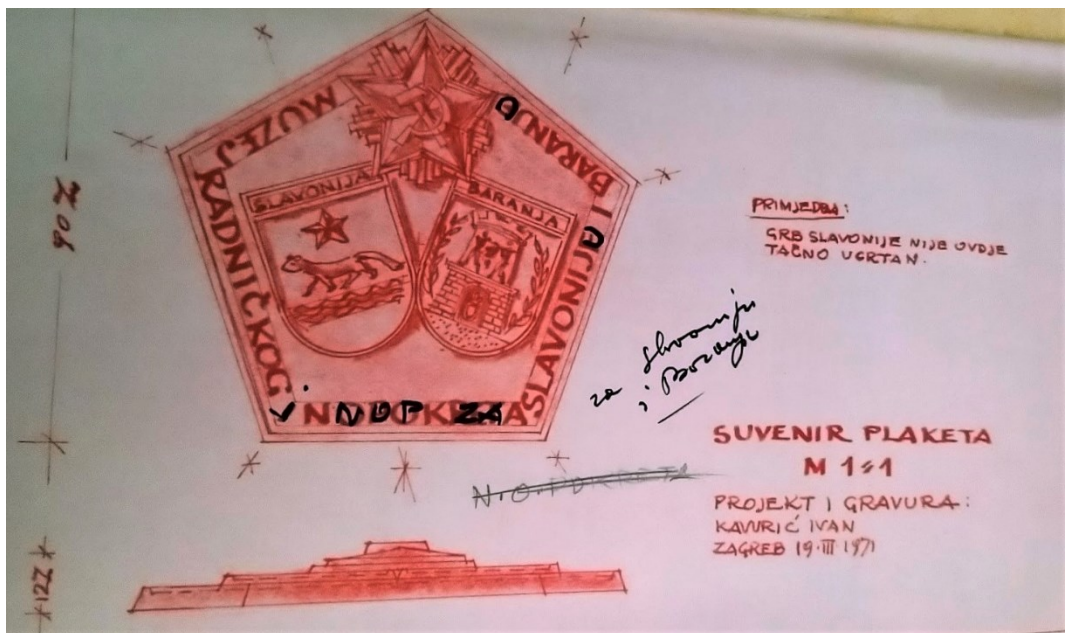 MUZEJ
RADNIČKOG
I NOP ZA
SLAVONIJU I
BARANJU
SLAVONIJA
BARANJA
90
12
PRIMJEDBA:
GRB SLAVONIJE NIJE OVDJE
TAČNO UCRTAN.
za Slavoniju
i Baranju
N.O.POKRETA
SUVENIR PLAKETA
M 1:1
PROJEKT I GRAVURA:
KAURIĆ IVAN
ZAGREB 19·III·1971